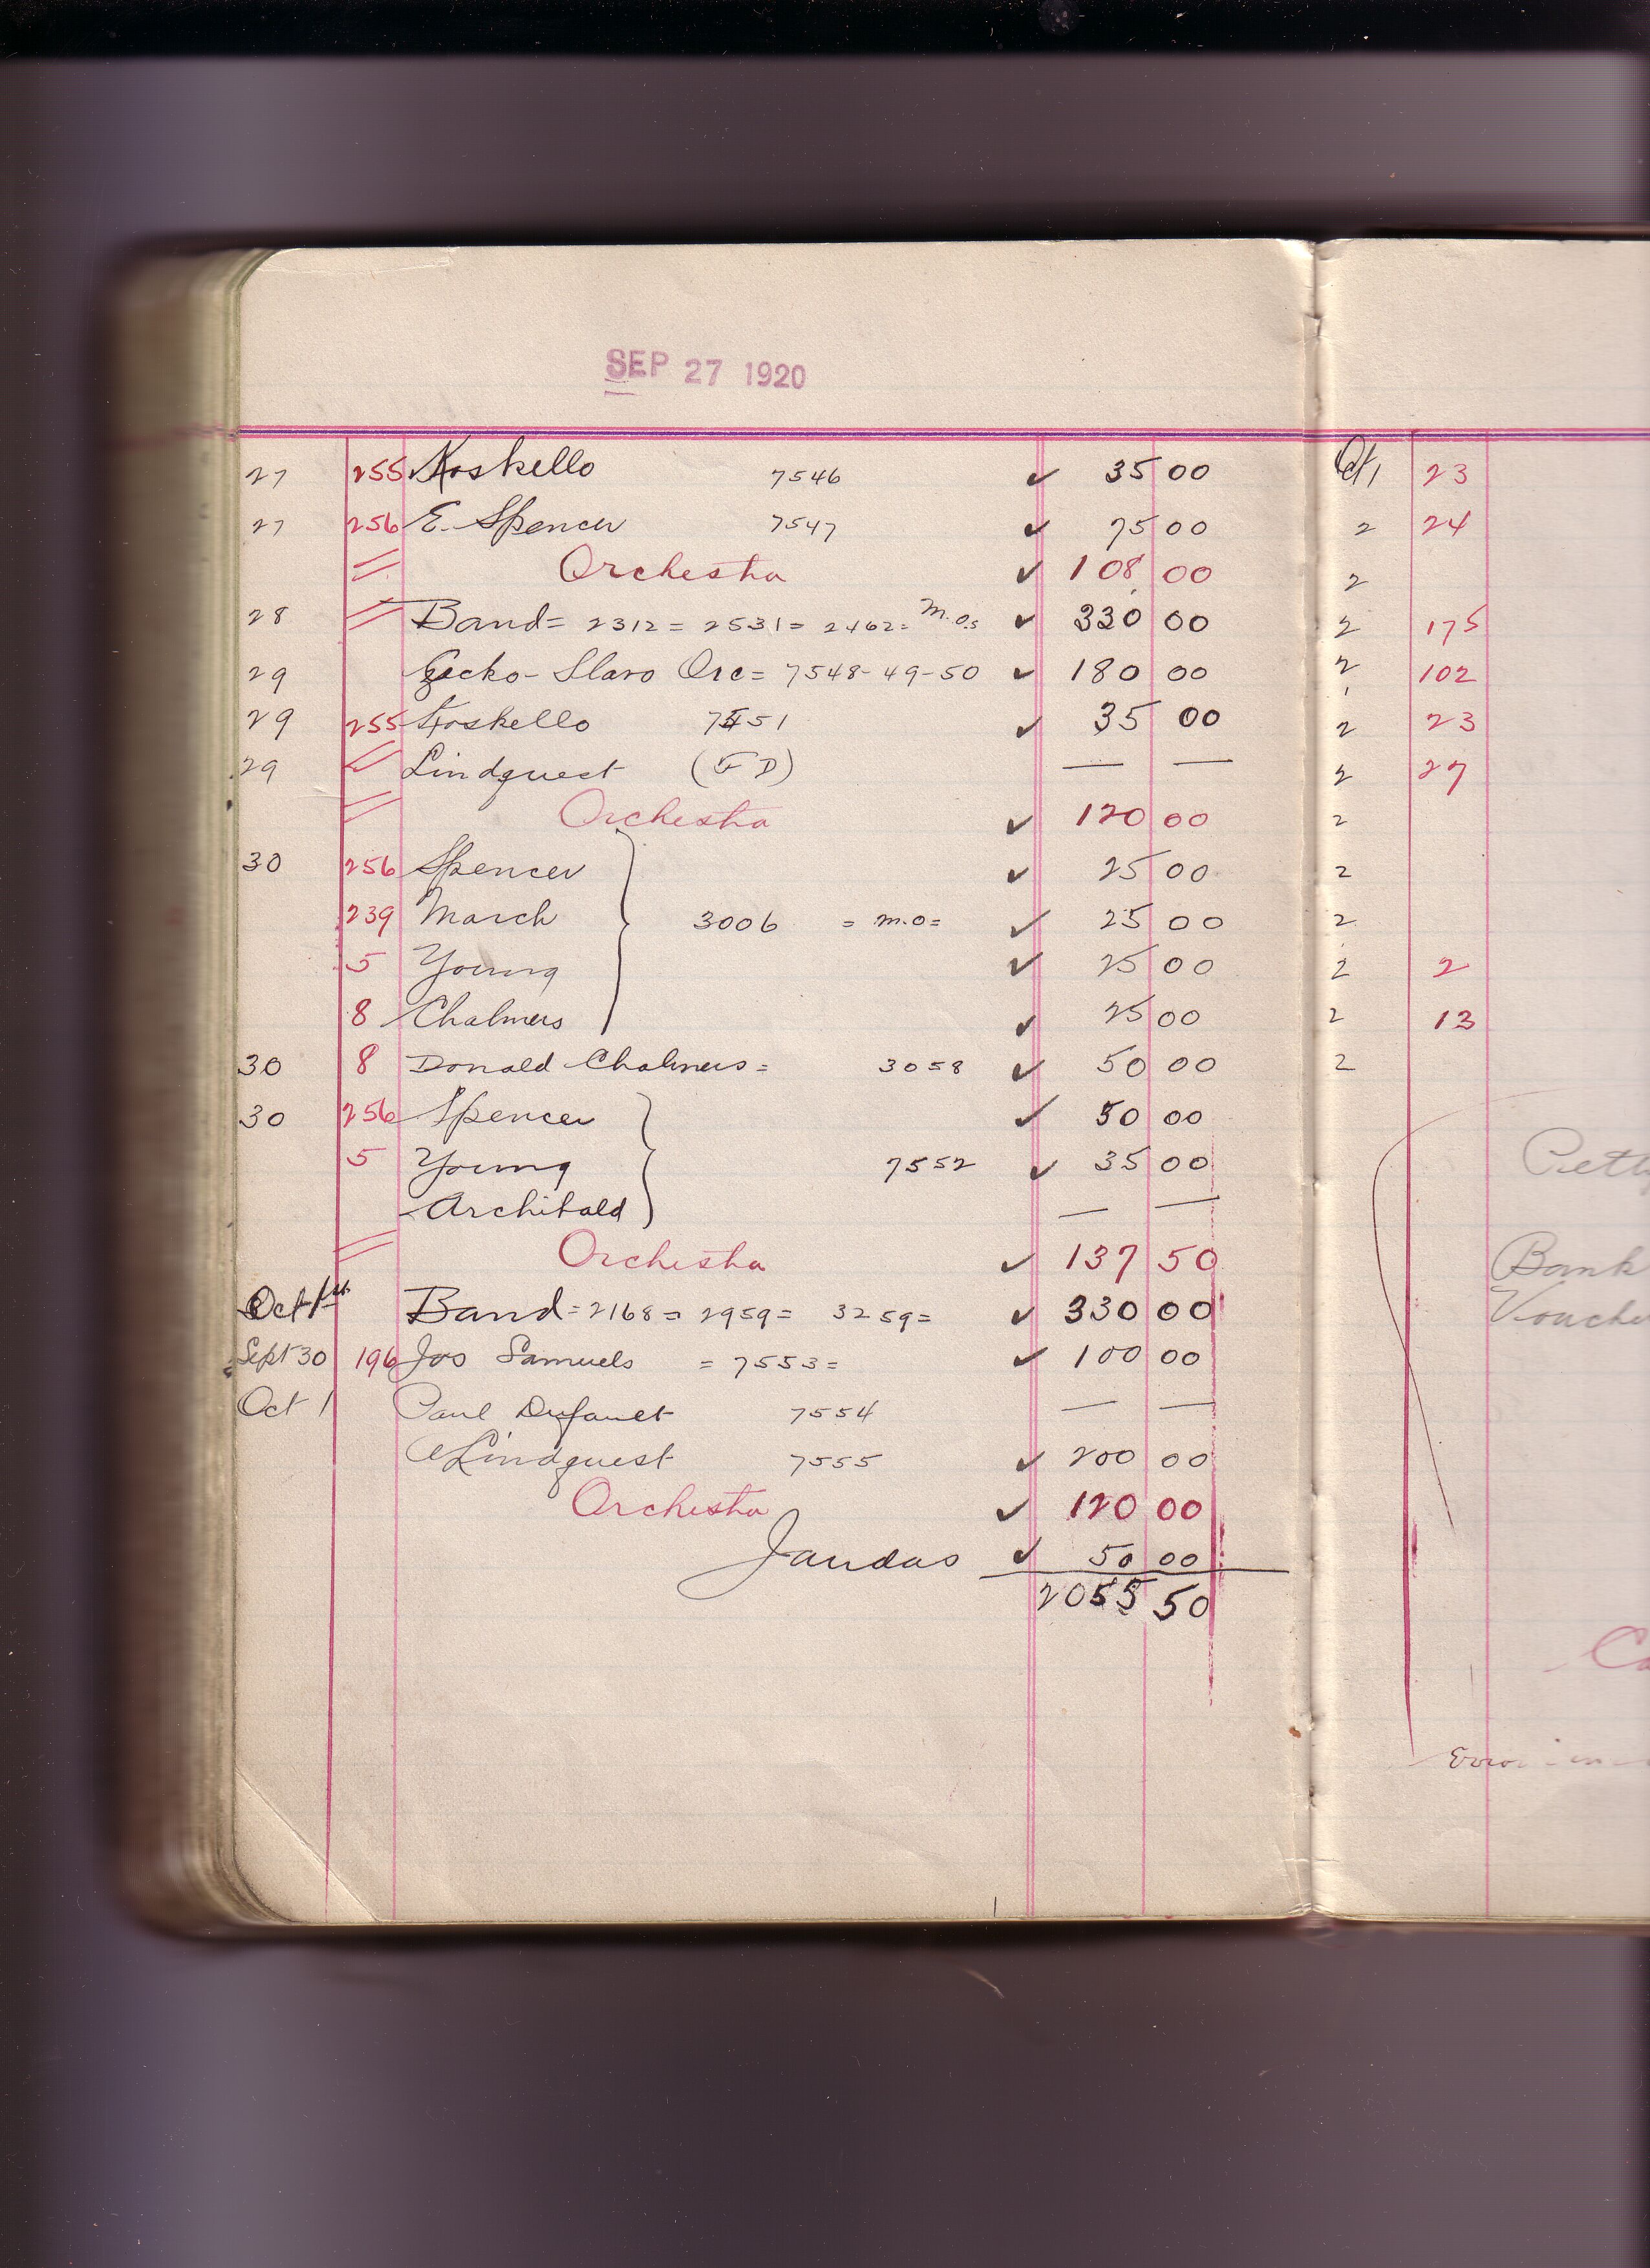 SEP 27 1920
27 255 Koskello 7546 ✓ 35 00
27 256 E. Spencer 7547 ✓ 75 00
" Orchestra ✓ 108 00
28 " Band = 2312 = 2531 = 2462 = M.Os ✓ 330 00
29 Gecko-Slavo Orc = 7548-49-50 ✓ 180 00
29 255 Koskello 7551 ✓ 35 00
29 " Lindquest ✓ — —
" Orchestra ✓ 120 00
30 256 Spencer ✓ 25 00
239 March 3006 = M.O = ✓ 25 00
5 Young ✓ 25 00
8 Chalmers ✓ 25 00
30 8 Donald Chalmers = 3058 ✓ 50 00
30 256 Spencer ✓ 50 00
5 Young 7552 ✓ 35 00
Archibald — —
" Orchestra ✓ 137 50
Oct 1st Band = 2168 = 2959 = 3259 = ✓ 330 00
Sept 30 196 Jos Samuels = 7553 = ✓ 100 00
Oct 1 Paul Dufault 7554 — —
Lindquest 7555 ✓ 200 00
Orchestra ✓ 120 00
Jandas ✓ 50 00
2055 50
23
2 24
2
2 175
2 102
2 23
2 27
2
2
2
2 2
2 13
2
Bank